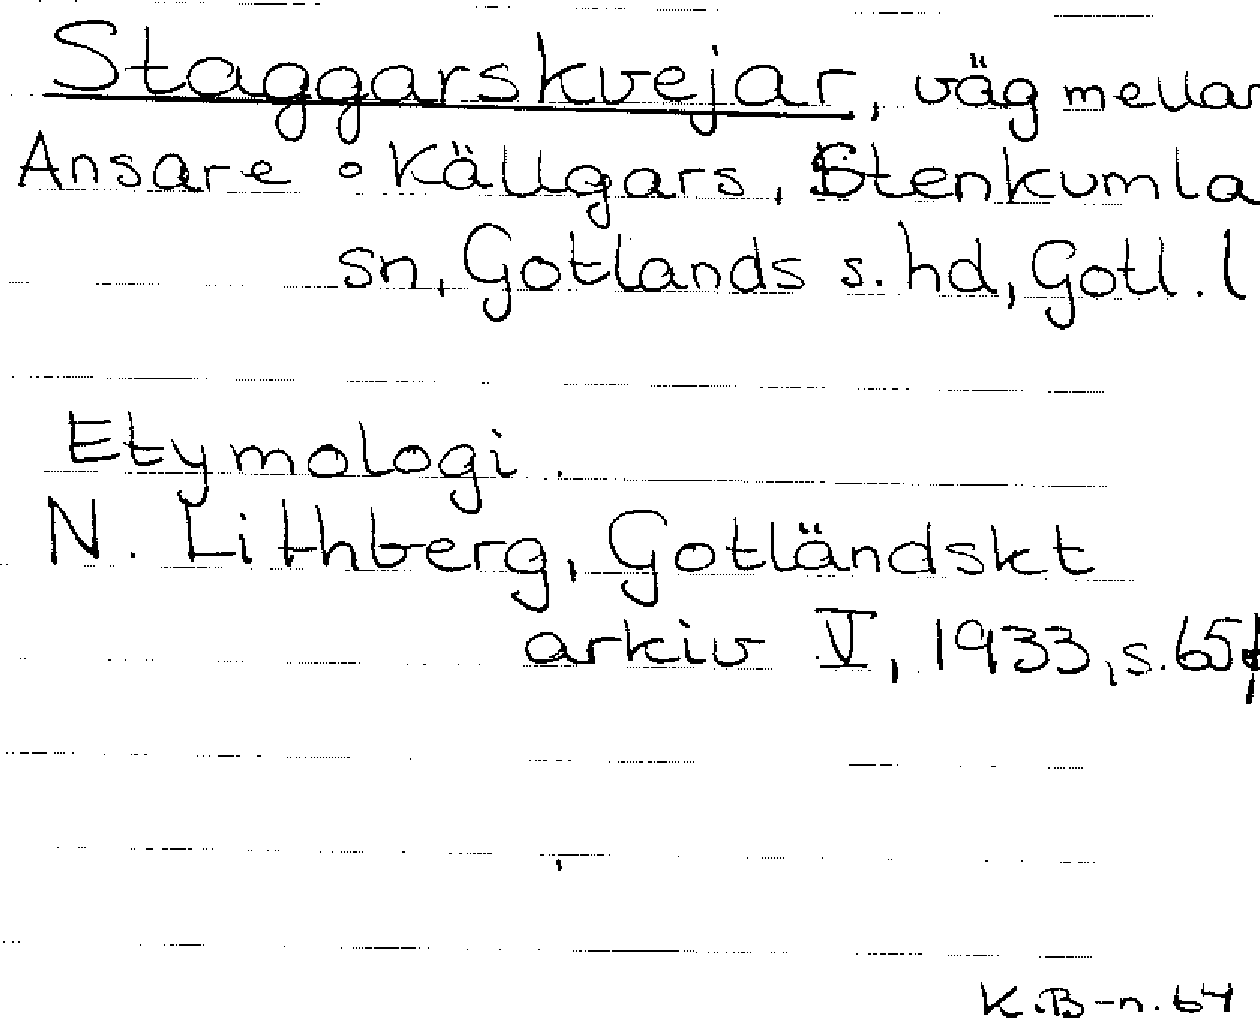 Staggarskvejar, väg mellan
Ansare o Källgars, Stenkumla
sn, Gotlands s. hd, Gotl. l
Etymologi.
N. Lithberg, Gotländskt
arkiv V, 1933, s. 65
K.B-n. 64